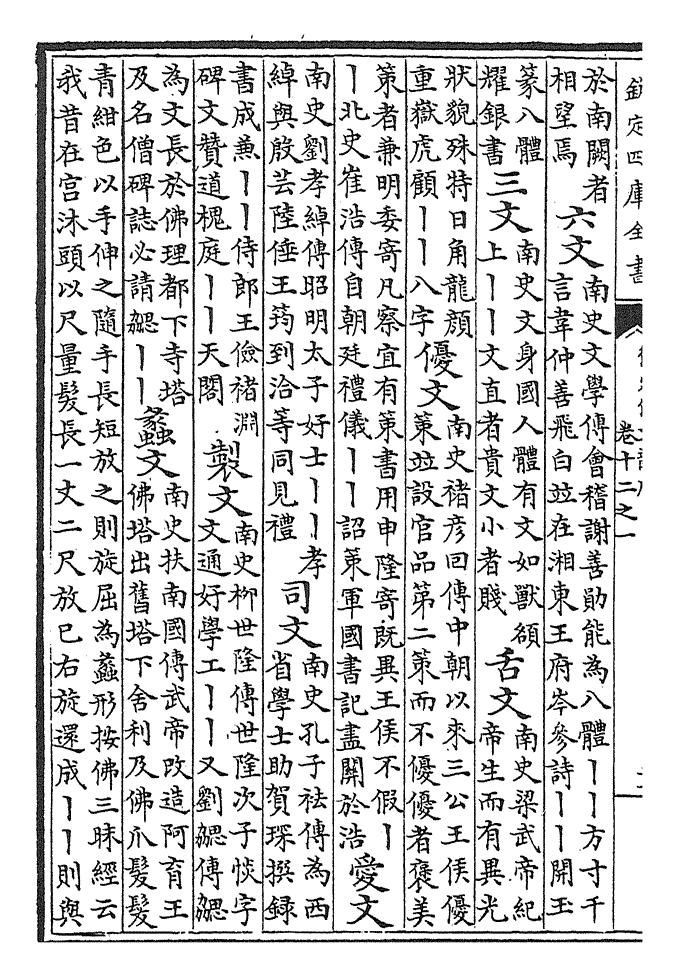 欽定四庫全書
卷十二之一
於南闕者
相望焉
六文
南史文學傳會稽謝善勛能為八體丨丨方寸千
言韋仲善飛白並在湘東王府岑參詩丨丨開玉
篆八體
耀銀書
三文
南史文身國人體有文如獸頟
上丨丨文直者貴文小者賤
舌文
南史梁武帝紀
帝生而有異光
狀貌殊特日角龍顔
重嶽虎顧丨丨八字
優文
南史褚彦回傳中朝以來三公王侯優
策並設官品第二策而不優優者褒美
策者兼明委寄凡察宜有策書用申隆寄既異王侯不假丨
丨北史崔浩傳自朝廷禮儀丨丨詔策軍國書記盡關於浩
愛文
南史劉孝綽傳昭明太子好士丨丨孝
綽與殷芸陸倕王筠到洽等同見禮
司文
南史孔子袪傳為西
省學士助賀琛撰録
書成兼丨丨侍郎王儉褚淵
碑文贊道槐庭丨丨天閣
製文
南史柳世隆傳世隆次子惔字
文通好學工丨丨又劉勰傳勰
為文長於佛理都下寺塔
及名僧碑誌必請勰丨丨
蠡文
南史扶南國傳武帝改造阿育王
佛塔出舊塔下舍利及佛爪髮髮
青紺色以手伸之隨手長短放之則旋屈為蠡形按佛三昧經云
我昔在宫沐頭以尺量髮長一丈二尺放已右旋還成丨丨則與